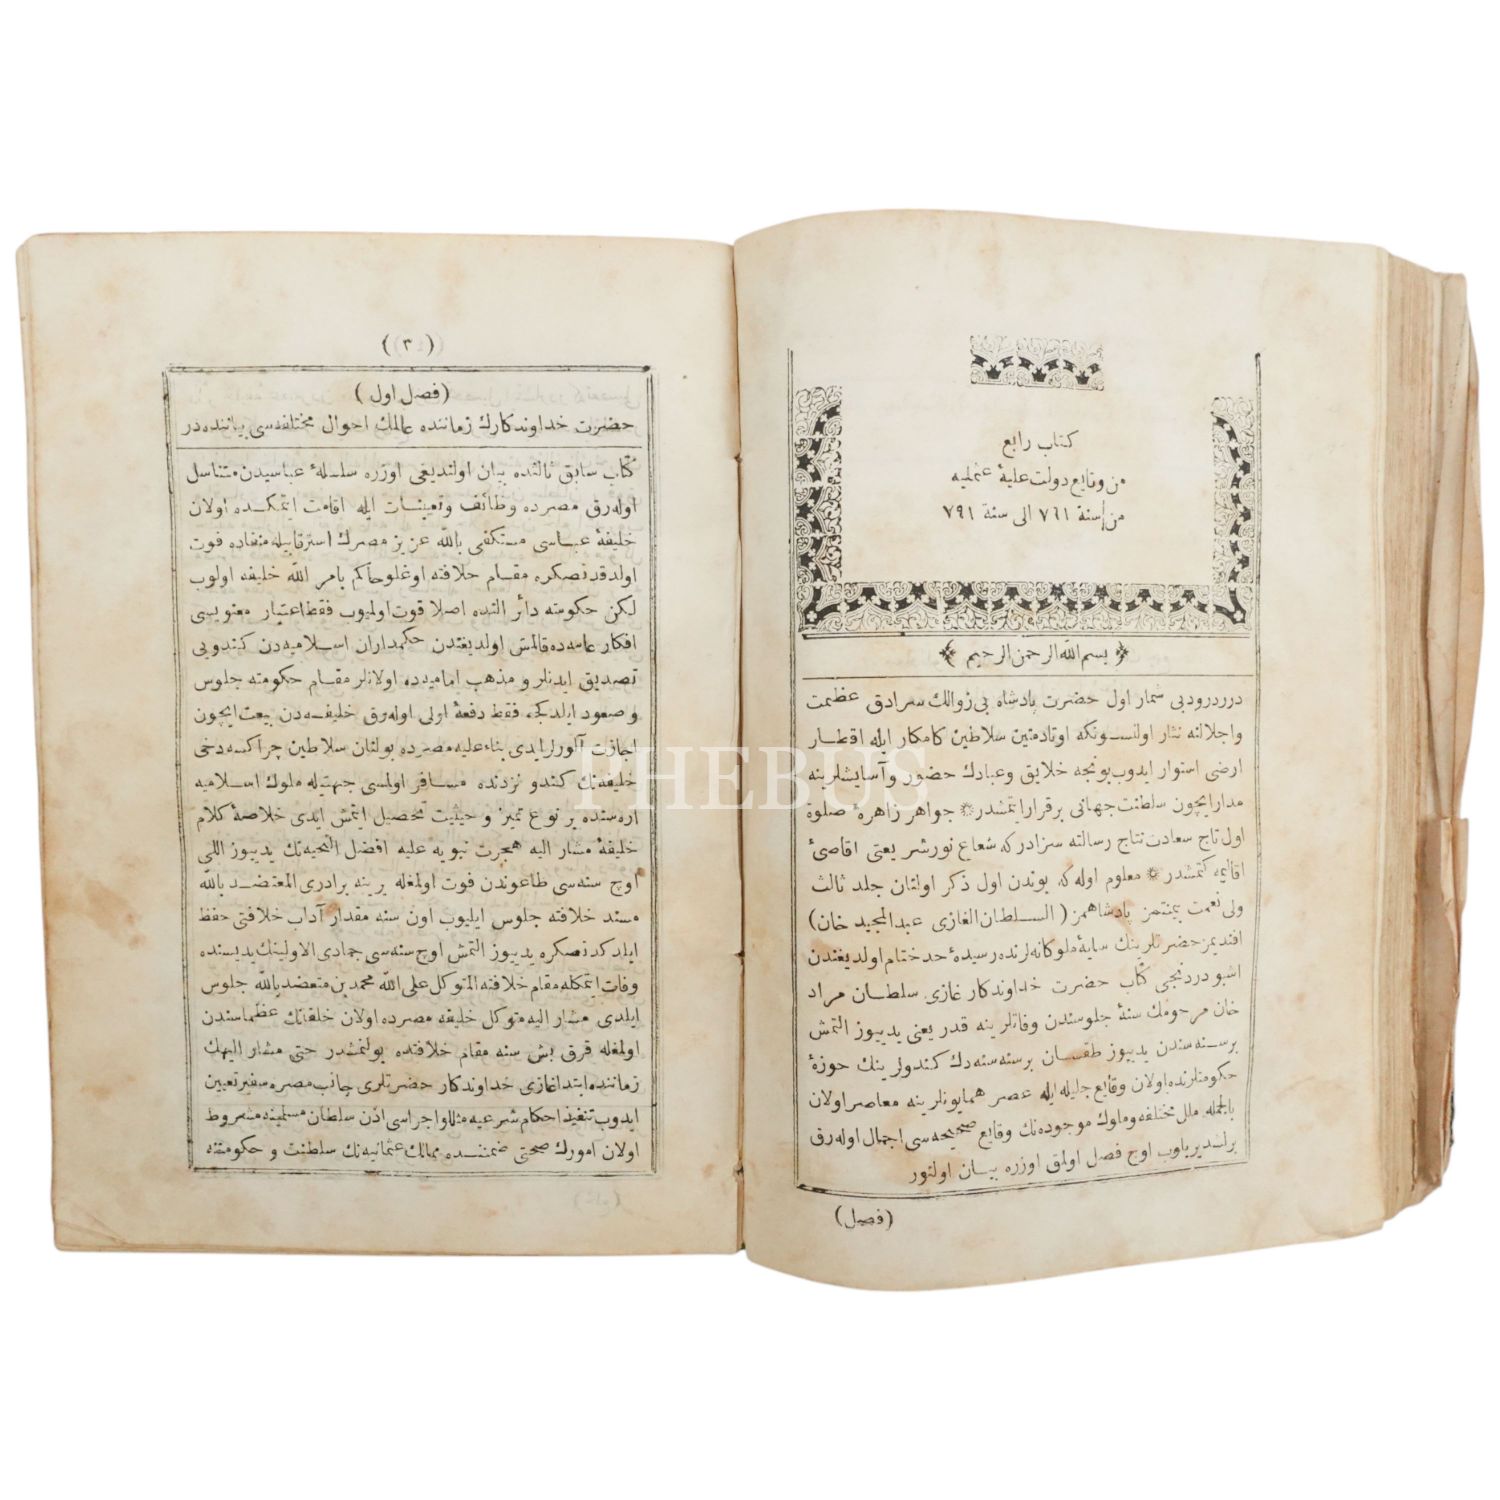 كتاب رابع
من وقايع دولت عليهٔ عثمانيه
من سنة ٧٦١ الى سنة ٧٩١
بسم الله الرحمن الرحيم
درر درود بى شمار اول حضرت پادشاه بى زوالك سرادق عظمت
واجلالنه نثار اولنسونكه اوتاد متين سلاطين كامكار ايله اقطار
ارضى استوار ايدوب بونجه خلايق وعبادك حضور وآسايشلرينه
مدار ايچون سلطنت جهانى برقرار ايتمشدر جواهر زاهرهٔ صلوة
اول تاج سعادت نتاج رسالته سزادركه شعاع نور شرع يعنى اقاصئ
اقاليمه كتمشدر معلوم اوله كه بوندن اول ذكر اولنان جلد ثالث
ولى نعمت بيمنتمز پادشاهمز (السلطان الغازى عبدالمجيد خان)
افنديمز حضرتلرينك سايهٔ ملوكانه لرنده رسيدهٔ حد ختام اولديغندن
اشبو دردنجى كتاب حضرت خداوندكار غازى سلطان مراد
خان مرحومك سنهٔ جلوسندن وفاتلرينه قدر يعنى يديوز التمش
برسنه سندن يديوز طقسان برسنه سنه دك كندولرينك حوزهٔ
حكومتلرنده اولان وقايع جليله ايله عصر همايونلرينه معاصر اولان
بالجمله ملل مختلفه وملوك موجوده نك وقايع صحيحه سى اجمال اوله رق
برلشديريلوب اوچ فصل اولمق اوزره بيان اولنور
(فصل)
(٣)
(فصل اول)
حضرت خداوندكارك زماننده عالمك احوال مختلفه سى بياننده در
كتاب سابق ثالثده بيان اولنديغى اوزره سلسلهٔ عباسيدن متناسل
اوله رق مصرده وظائف وتعينات ايله اقامت ايتمكده اولان
خليفهٔ عباسى مستكفى بالله عزيز مصرك استرقابيله منفاده فوت
اولدقدنصكره مقام خلافته اوغلو حاكم بامر الله خليفه اولوب
لكن حكومته دائر النده اصلا قوت اولميوب فقط اعتبار معنويسى
افكار عامه ده قالمش اولديغندن حكمداران اسلاميه دن كندويى
تصديق ايدنلر و مذهب امامیده اولانلر مقام حكومته جلوس
و صعود ايلدكجه فقط دفعهٔ اولى اوله رق خليفه دن بيعت ايچون
اجازت آلورلرايدى بناء عليه مصرده بولنان سلاطين چراكسه دخى
خليفه نك كندو نزدنده مسافر اولمسى جهتيله ملوك اسلاميه
اره سنده بر نوع تميز و حيثيت تحصيل ايتمش ايدى خلاصهٔ كلام
خليفهٔ مشار اليه هجرت نبويه عليه افضل التحيه نك يديوز اللى
اوچ سنه سى طاعوندن فوت اولمغله برينه برادرى المعتضد بالله
مسند خلافته جلوس ايليوب اون سنه مقدار آداب خلافتى حفظ
ايلدكدنصكره يديوز التمش اوچ سنه سى جمادى الاولينك يديسنده
وفات ايتمكله مقام خلافته المتوكل على الله محمد بن متعضد بالله جلوس
ايلدى مشار اليه متوكل خليفه مصرده اولان خلفانك عظماسندن
اولمغله قرق بش سنه مقام خلافتده بولنمشدر حتى مشار اليهك
زماننده ابتدا غازى خداوندكار حضرتلرى جانب مصره سفير تعيين
ايدوب تنفيذ احكام شرعيه مثللو اجراسى اذن سلطان مسلمينه مشروط
اولان امورك صحتى ضمننده ممالك عثمانيه نك سلطنت و حكومتنه
THEBUS